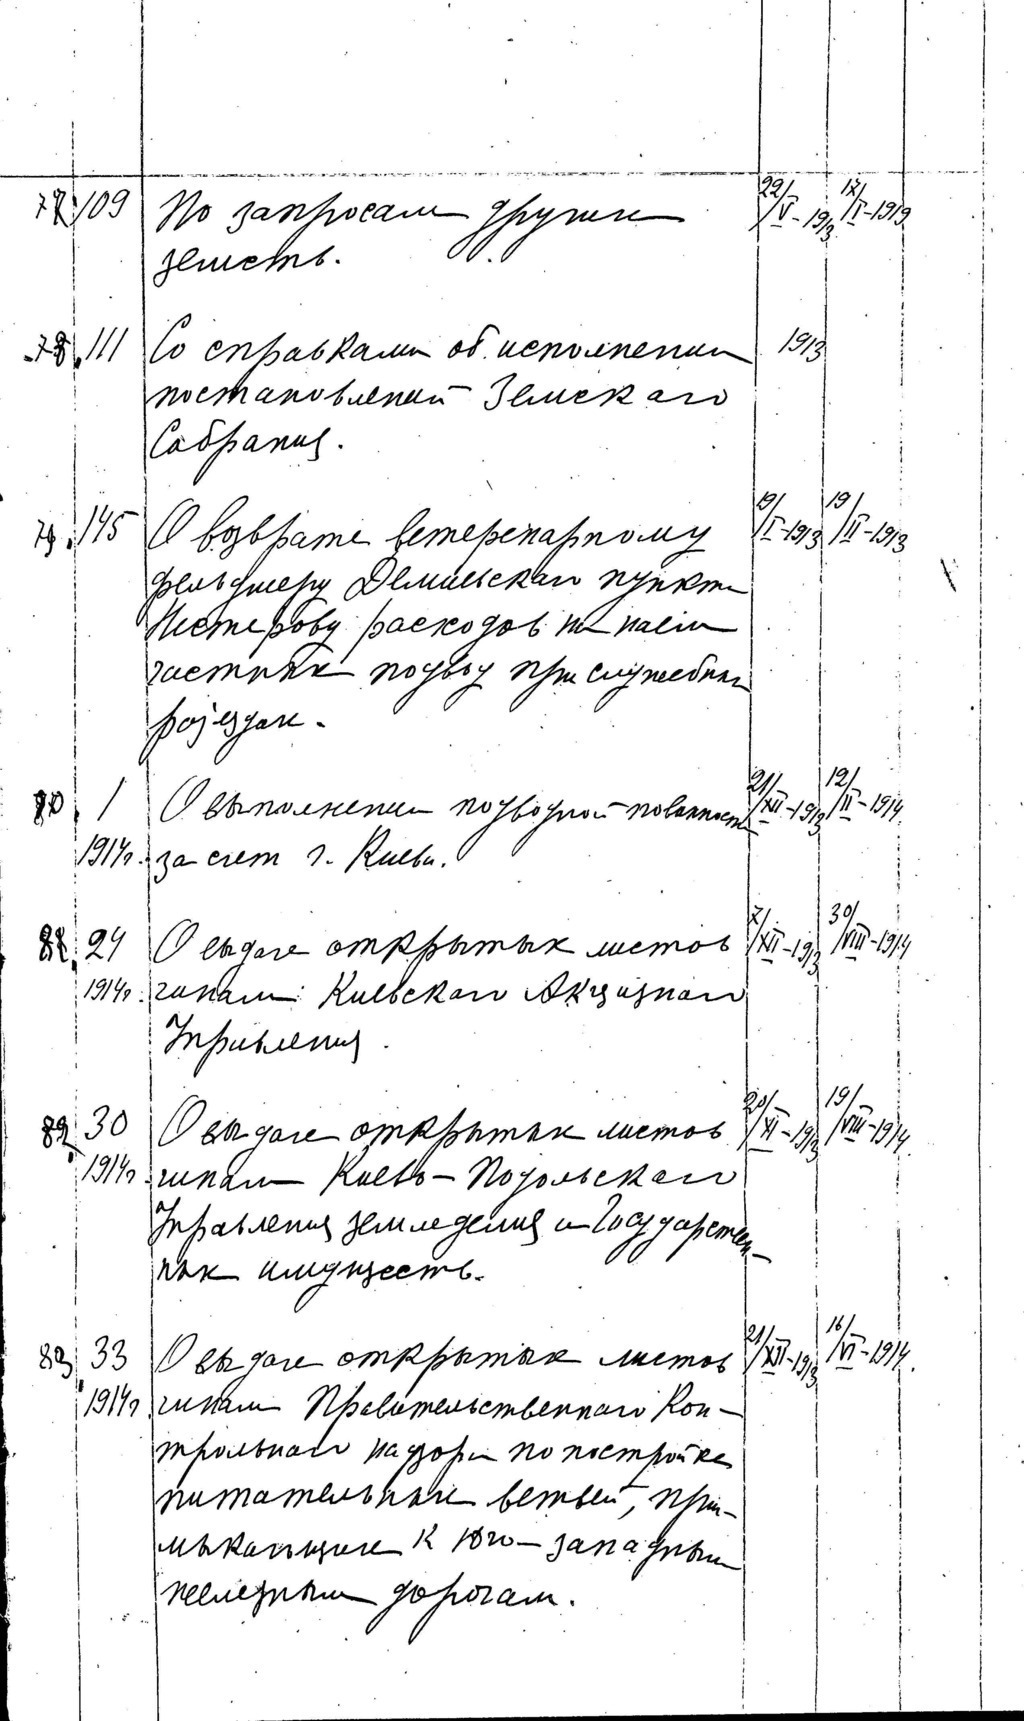 77. 109 По запросам других 22/V-1913 17/I-1919
земств.
78. 111 Со справками об исполнении 1913
постановлений Земского
Собрания.
79. 145 О возврате ветеренарному 19/I-1913 19/II-1913
фельдшеру пункта
Нестерову расходов на наем
частных подвод при служебных
разъездах.
80. 1 О выполнении подводной повинности 21/XII-1913 12/II-1914.
1914г. за счет г. Киева.
81. 24 О выдаче открытых листов 7/XII-1913 30/VIII-1914
1914г. чинам Киевского Акцизного
Управления.
82. 30 О выдаче открытых листов 20/XI-1913 19/VIII-1914.
1914г. чинам Киево-Подольского
Управления земледелия и Государствен-
ных имуществ.
83. 33 О выдаче открытых листов 21/XII-1913 16/VI-1914.
1914г. чинам Правительственного Кон-
трольного надзора по постройке
питательных ветвей, при-
мыкающих к Юго-западным
железным дорогам.